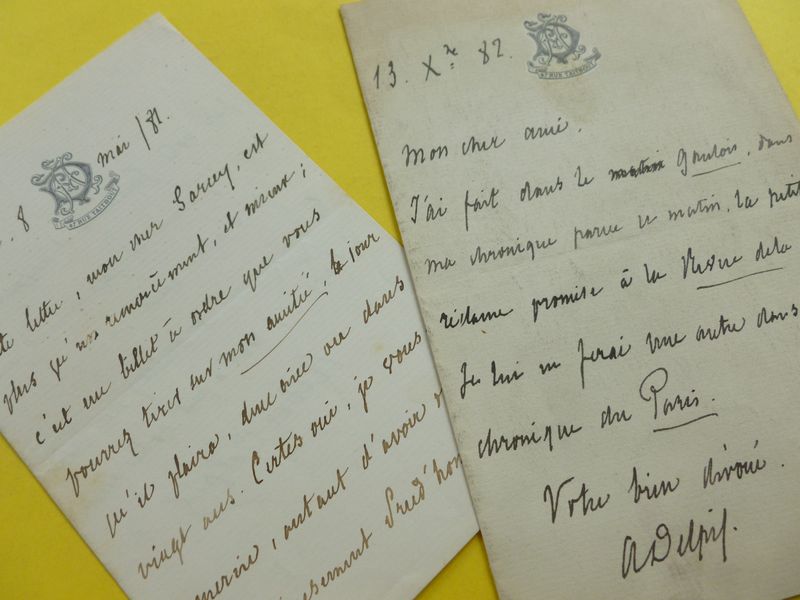 8 mai /81.
47 RUE TAITBOUT
lettre, mon cher Sarcey, est
plus qu'un remerciement, et mieux ;
c'est une billet à ordre que vous
pourrez tirer sur mon amitié, le jour
qu'il plaira, dme ou dans
vingt ans. Certes oui, je vous
autant d'avoir
13. Xre 82.
47 RUE TAITBOUT
Mon cher ami.
J'ai fait dans le matin Gaulois, dans
ma chronique parue ce matin, la petite
réclame promise à la Revue de la
Je lui en ferai une autre dans
chronique du Paris.
Votre bien dévoué.
ADelpit.